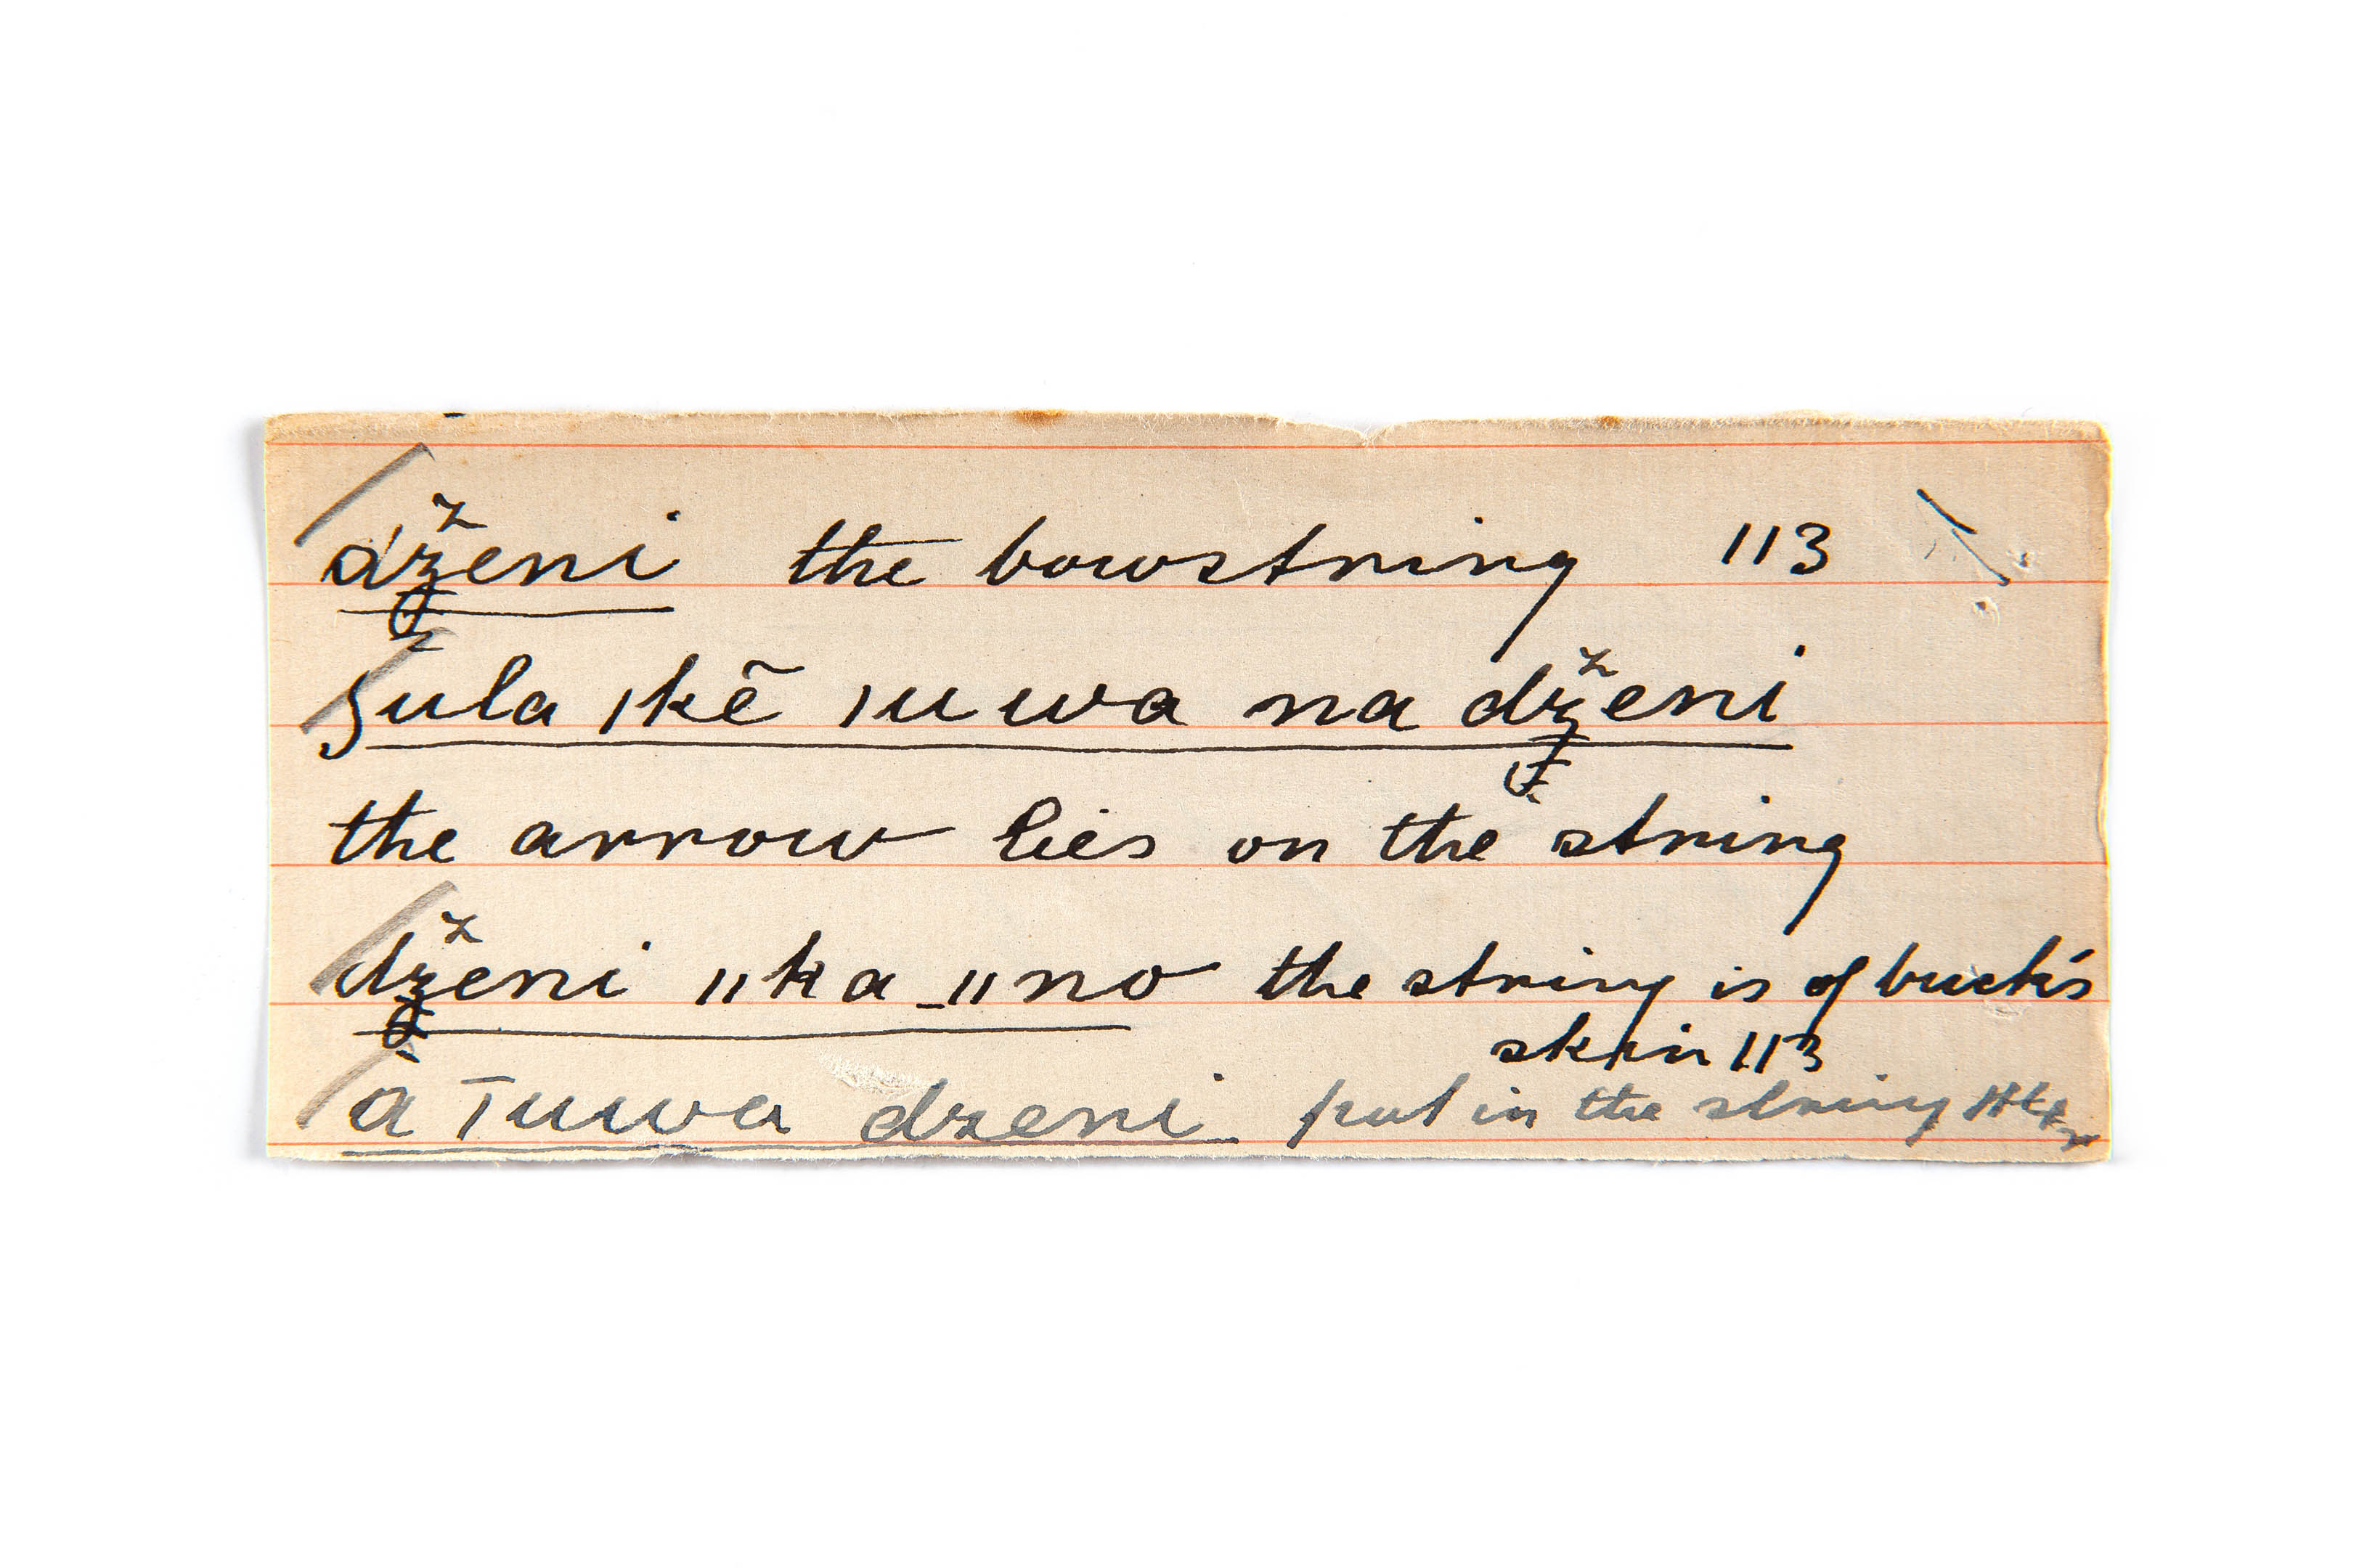 dženi the bowstring 113
ʃula ǀkē ǀuwa na dženi
the arrow lies on the string
dženi ǁka_ǁno the string is of buck's
skin 113
a Tuwa dzeni put in the string